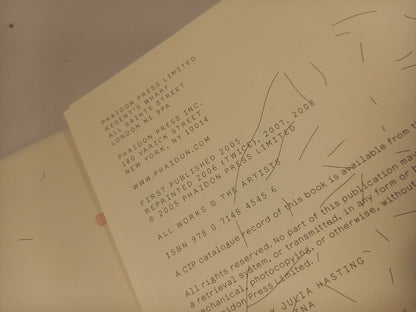 PHAIDON PRESS LIMITED
REGENT'S WHARF
ALL SAINTS STREET
LONDON N1 9PA
PHAIDON PRESS INC.
180 VARICK STREET
NEW YORK, NY 10014
WWW.PHAIDON.COM
FIRST PUBLISHED 2005
REPRINTED 2006 (TWICE), 2007, 2008
© 2005 PHAIDON PRESS LIMITED
ALL WORKS © THE ARTISTS
ISBN 978 0 7148 4545 6
A CIP catalogue record of this book is available from th
All rights reserved. No part of this publication may
a retrieval system, or transmitted, in any form or b
chanical, photocopying, or otherwise, without
idon Press Limited.
JULIA HASTING
INA